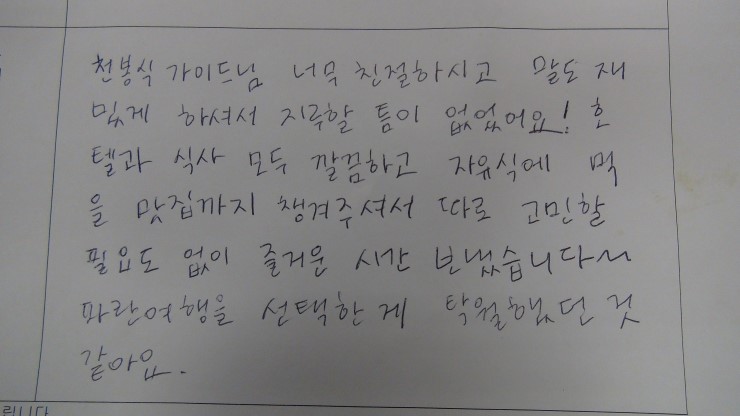 천봉식 가이드님 너무 친절하시고 말도 재
밌게 하셔서 지루할 틈이 없었어요! 호
텔과 식사 모두 깔끔하고 자유식에 먹
을 맛집까지 챙겨주셔서 따로 고민할
필요도 없이 즐거운 시간 보냈습니다~
파란여행을 선택한 게 탁월했던 것
같아요.
립니다